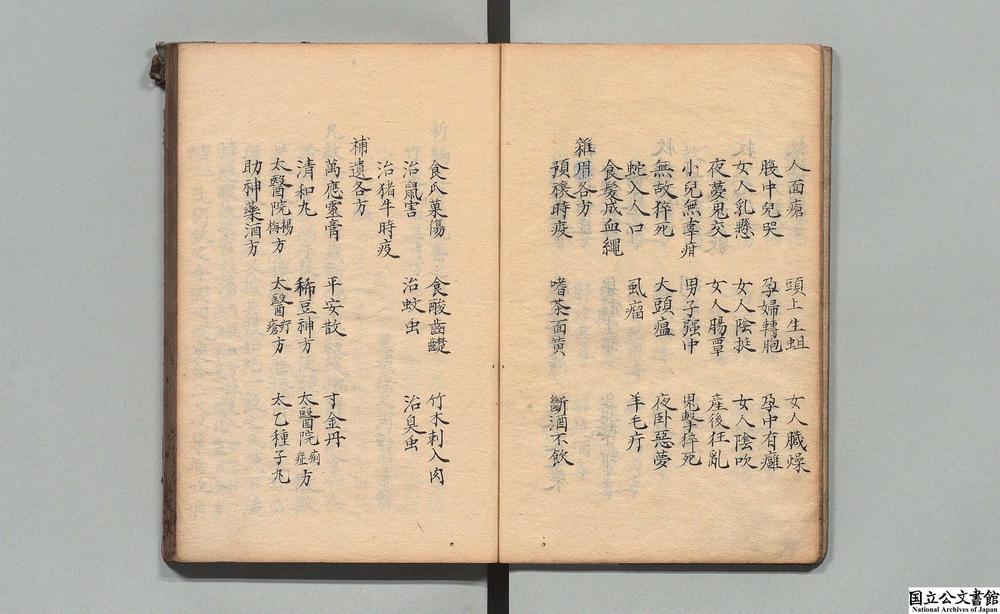 人面瘡 頭上生蛆 女人臟燥
腹中兒哭 孕婦轉胞 孕中有癰
女人乳懸 女人陰挺 女人陰吹
夜夢鬼交 女人腸覃 產後狂亂
小兒無辜疳 男子强中 鬼擊猝死
無故猝死 大頭瘟 夜卧惡夢
蛇入人口 虱瘤 羊毛疔
食髮成血繩
雜用各方
預禳時疫 嗜茶面黄 斷酒不飲
食瓜菓傷 食酸齒齼 竹木刺入肉
治鼠害 治蚊虫 治臭虫
治猪牛時疫
補遺各方
萬應靈膏 平安散 寸金丹
清和丸 稀豆神方 太醫院痢症方
太醫院楊梅方 太醫疔瘡方 太乙種子丸
助神藥酒方
国立公文書館
National Archives of Japan